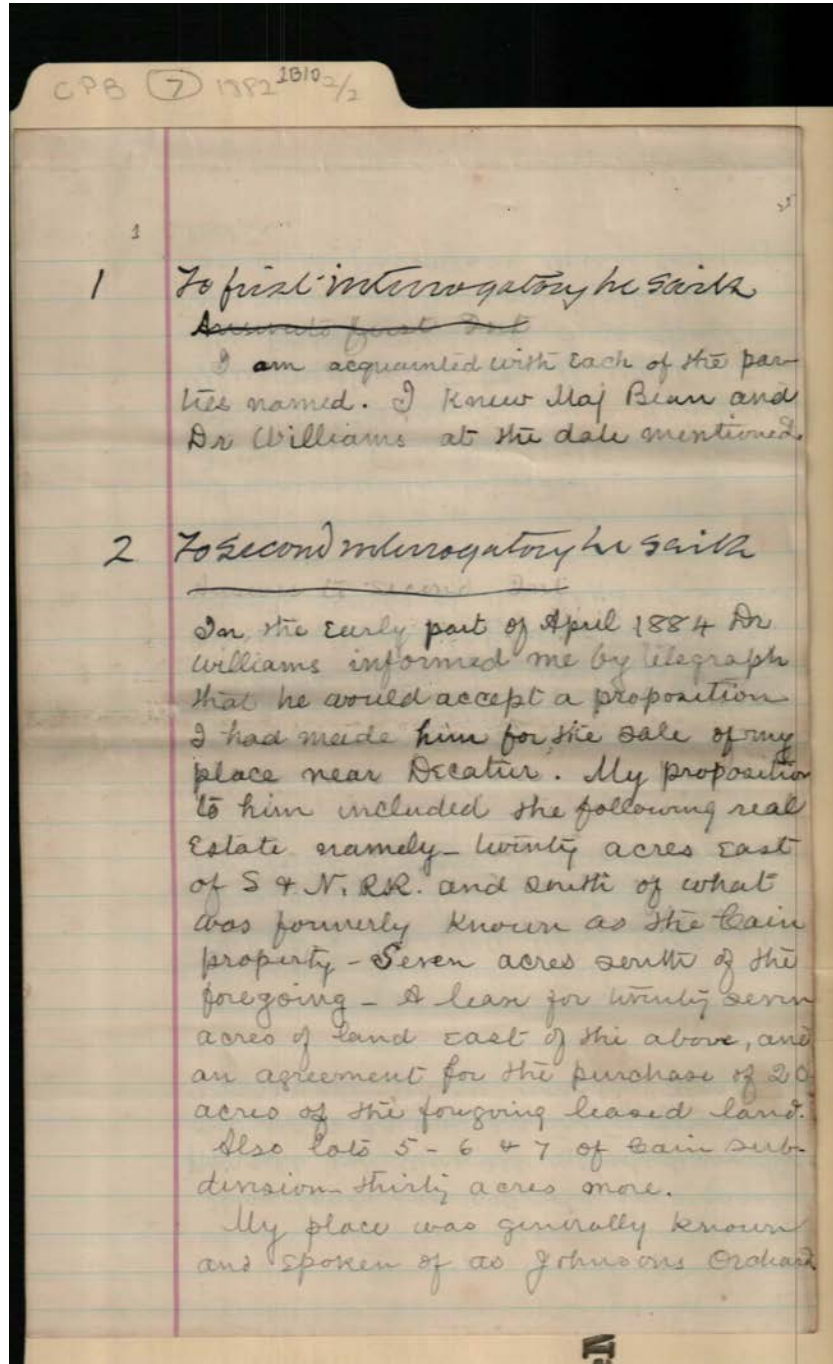 CPB 7 1882 1310 2/2
25
1
1 To first interrogatory he saith
Answer to first Int
I am acquainted with Each of the par-
ties named. I Knew Maj Bean and
Dr Williams at the date mentioned.
2 To Second interrogatory he saith
Answer to Second Int
In the Early part of April 1884 Dr
Williams informed me by telegraph
that he would accept a proposition
I had made him for the sale of my
place near Decatur. My proposition
to him included the following real
Estate namely - twenty acres East
of S & N. RR. and south of what
was formerly Known as the Cain
property - Seven acres south of the
foregoing - A lease for twenty seven
acres of land East of the above, and
an agreement for the purchase of 20
acres of the foregoing leased land.
Also lots 5 - 6 & 7 of Cain sub-
division thirty acres more.
My place was generally Known
and spoken of as Johnsons Orchard